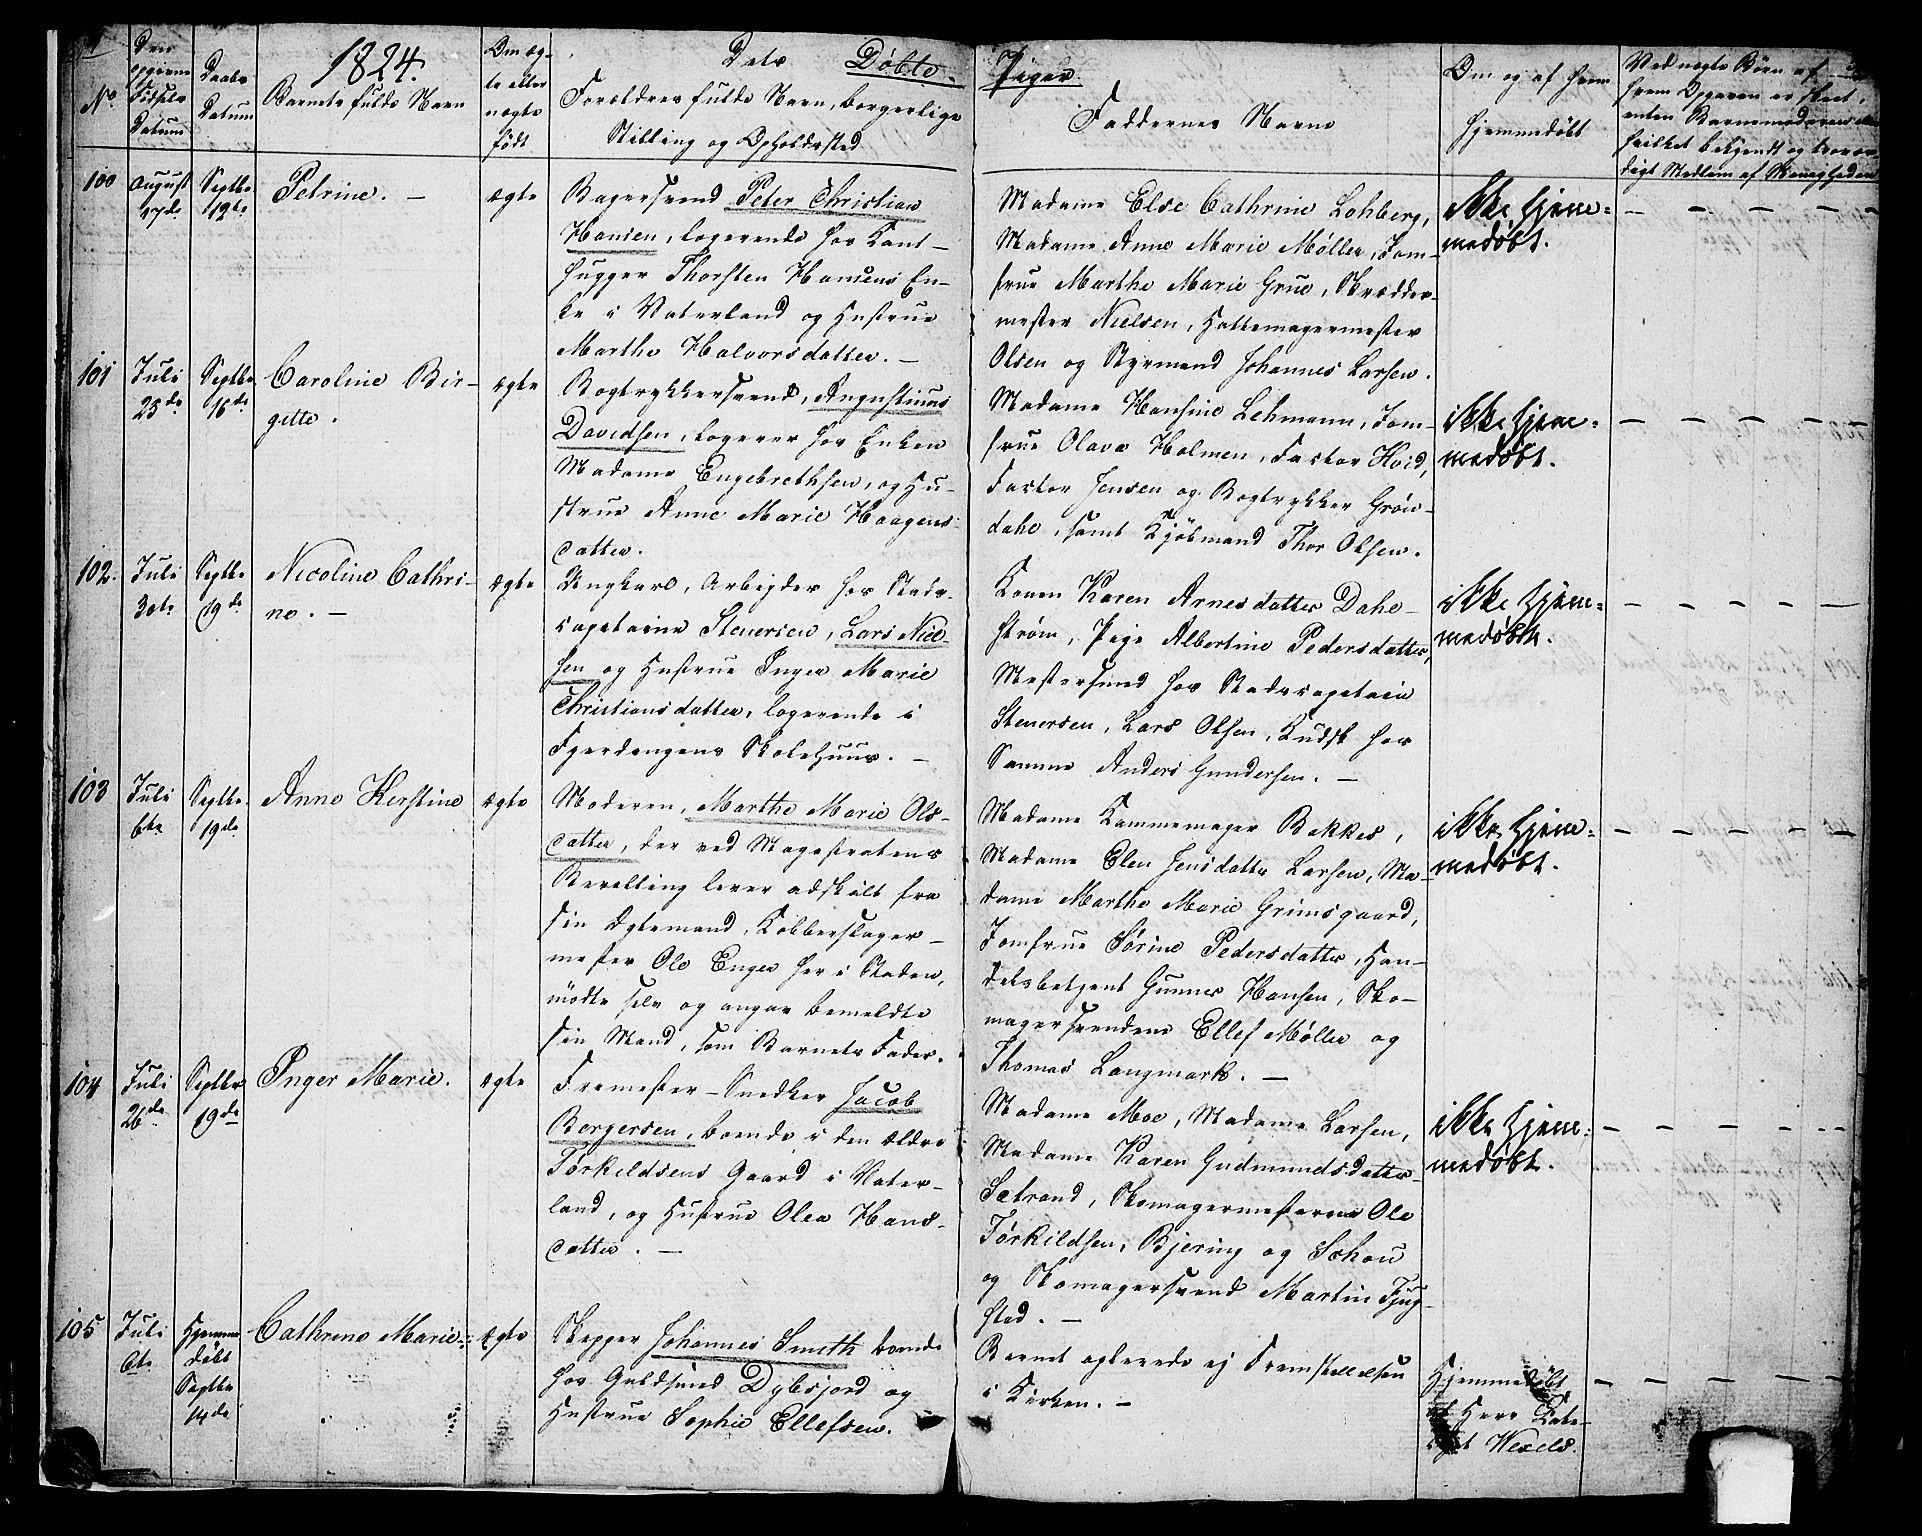 1824.
Dets Døbte Piger
No.
Den opgivne Fødsels Datum
Daabs Datum
Barnets fulde Navn
Om ægte eller uægte født
Forældres fulde Navn, borgerlige
Stilling og Opholdssted
Faddernes Navne
Om og af hvem
hjemmedøbt
Ved uægte Børn af
hvem Opgaven er skeet,
enten Barnemoderen
hvilket bekjendt og troværdigt Medlem af Menigheden
100
August 17de
Septbr 12te
Petrine. —
ægte
Bagersvend Peter Christian
Hansen, logerende hos Kant-
hugger Thorsten Hansens En-
ke i Vaterland og Hustrue
Marthe Halvorsdatter. —
Madame Else Cathrine Lohberg,
Madame Anne Marie Møller, Jom-
frue Marthe Marie Grue, Skrædder-
mester Nielsen, Hattemagermester
Olsen og Styrmand Johannes Larsen.
ikke hjem-
medøbt.
101
Juli 25de
Septbr 16de
Caroline Bir-
gitte.
ægte
Bogtrykkersvend, Augustinus
Davidsen, logerer hos Enken
Madame Engebrethsen, og Hu-
strue Anne Marie Haagens-
datter.
Madame Hansine Lehmann, Jom-
frue Olava Holmen, Factor Hvid,
Factor Jensen og Bogtrykker Grøn-
dahl, samt Kjøbmand Thor Olsen.
ikke hjem-
medøbt.
102.
Juli 30te
Septbr 19de
Nicoline Cathri-
ne. —
ægte
Ungkarl, Arbejder hos Stads-
capetaine Stenersen, Lars Niel-
sen og Hustrue Inger Marie
Christiansdatter, logerende i
Fjerdingens Skolehuus. —
Konen Karen Arnesdatter Dahl-
strøm, Pige Albertine Pedersdatter,
Mestersvend hos Stadscapetain
Stenersen, Lars Olsen, Kudsk hos
Samme Anders Gundersen. —
ikke hjem-
medøbt.
103
Juli 6te
Septbr. 19de
Anne Kerstine
ægte
Moderen, Marthe Marie Ols-
datter, der ved Magistratens
Bevilling lever adskilt fra
sin Ægtemand, Kobberslager-
mester Ole Enger her i Staden,
mødte selv og angav bemeldte
sin Mand, som Barnets Fader.
Madame Kammemager Bakkes,
Madame Elen Jensdatter Larsen, Ma-
dame Marthe Marie Grimsgaard,
Jomfrue Sørine Pedersdatter, Han-
delsbetjent Gunner Hansen, Sko-
magersvendene Ellef Møller og
Thomas Langmark. —
ikke hjem-
medøbt.
104
Juli 26de
Septbr 19de
Inger Marie.
ægte
Fremester-Snedker Jacob
Borgersen, boende i den ældre
Tørkildsens Gaard i Vater-
land, og Hustrue Olea Hans-
datter. —
Madame Moe, Madame Larsen,
Madame Karen Gudmundsdatter
Sætrand, Skomagermesterne Ole
Tørkildsen, Bjering og Schou
og Skomagersvend Martin Fjug-
stad. —
ikke hjem-
medøbt.
105
Juli 6te
Hjemme
døbt
Septbr
14de
Cathrine Marie.
ægte
Skipper Johannes Smith boende
hos Guldsmed Dybsjord og
Hustrue Sophie Ellefsen.
Barnet oplevede ej Fremstillelsen
i Kirken. —
Hjemmedøbt
af Herr Kate-
chet Wexels.